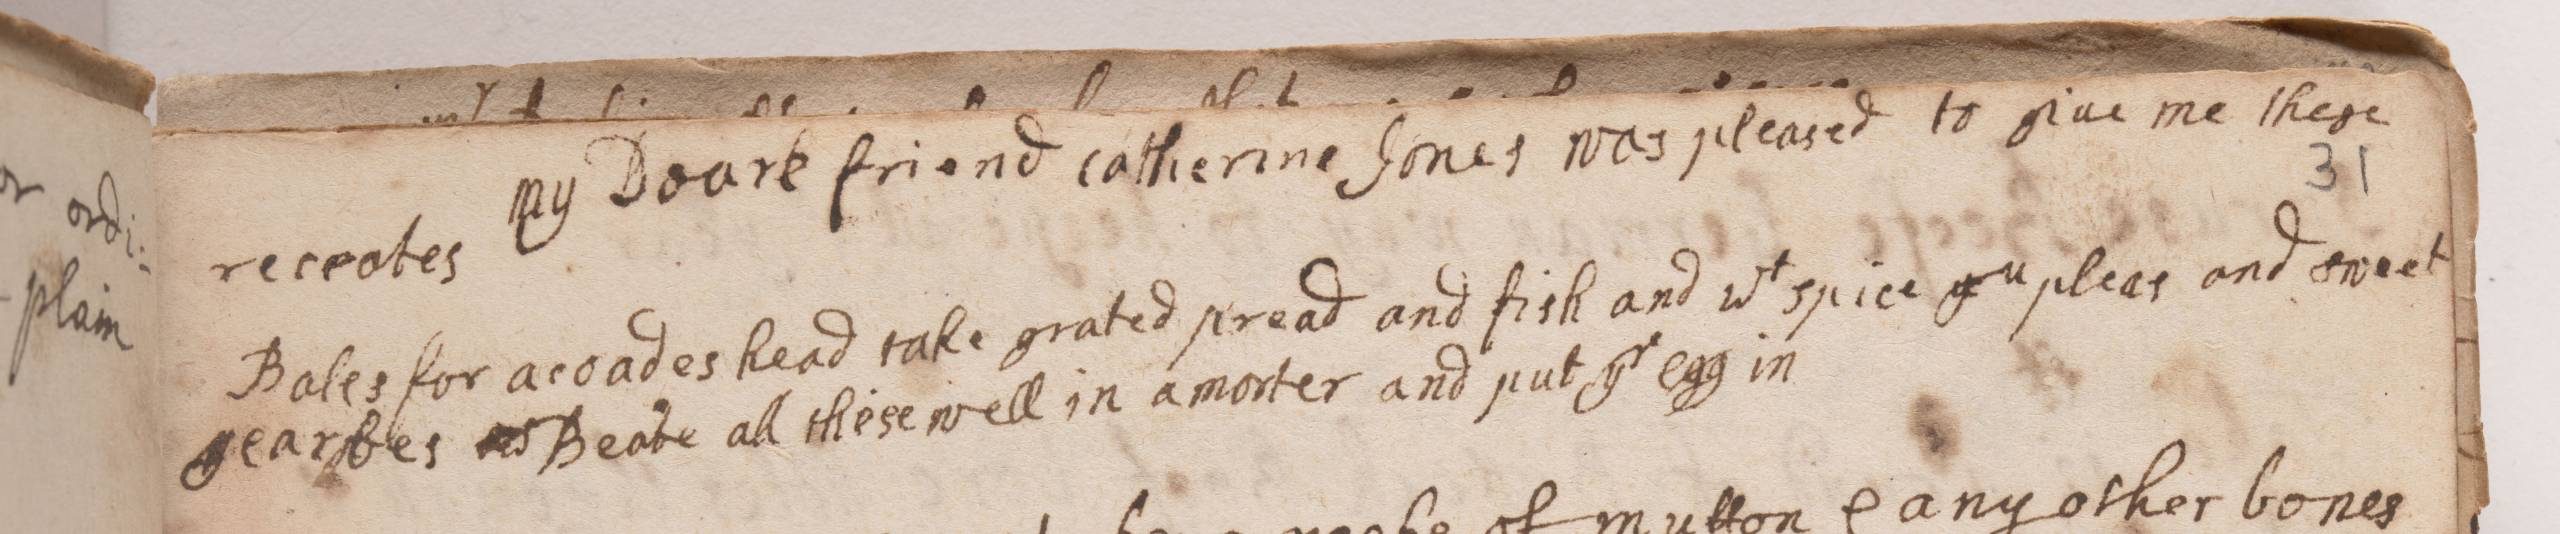 or ordi:
plain
my Deare friend catherine Jones was pleased to giue me these
31
receates
Bales for acoades head take grated pread and fish and wt spice yu pleas and sweet
yearbes Beate all these well in a morter and put yr egg in
of mutton & any other bones